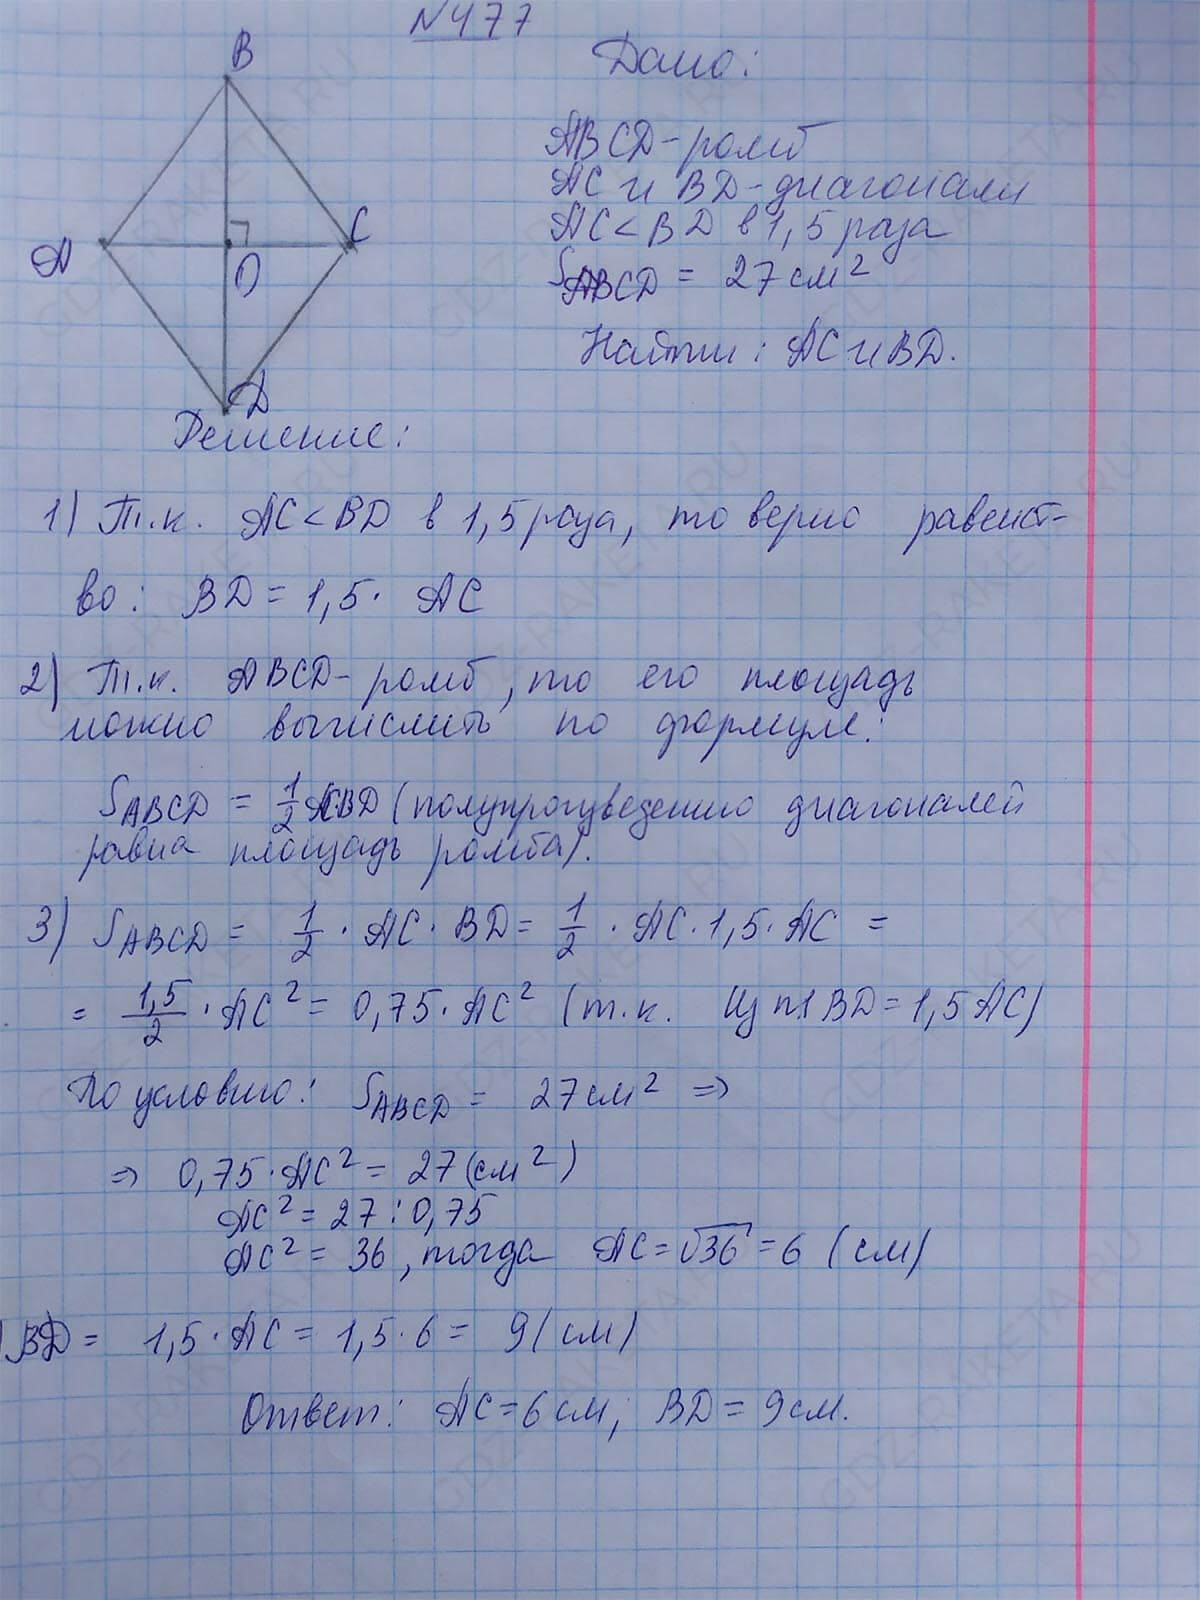 №477
B
Дано:
ABCD-ромб
AC и BD-диагонали
A
C
AC<BD в 1,5 раза
O
SABCD = 27 см²
Найти: AC и BD.
D
Решение:
1) Т.к. AC<BD в 1,5 раза, то верно равенст-
во: BD = 1,5· AC
2) Т.к. ABCD-ромб, то его площадь
можно вычислить по формуле:
SABCD = 1/2 ACBD (полупроизведению диагоналей
равна площадь ромба).
3) SABCD = 1/2 · AC · BD = 1/2 · AC · 1,5 · AC =
= 1,5/2 · AC² = 0,75 · AC² (т.к. Из п1 BD = 1,5 AC)
По условию: SABCD = 27 см² ⇒
⇒ 0,75·AC² = 27 (см²)
AC² = 27 : 0,75
AC² = 36, тогда AC = √36 = 6 (см)
) BD = 1,5·AC = 1,5·6 = 9 (см)
Ответ: AC = 6 см; BD = 9 см.
GDZ-RAKETA.RU